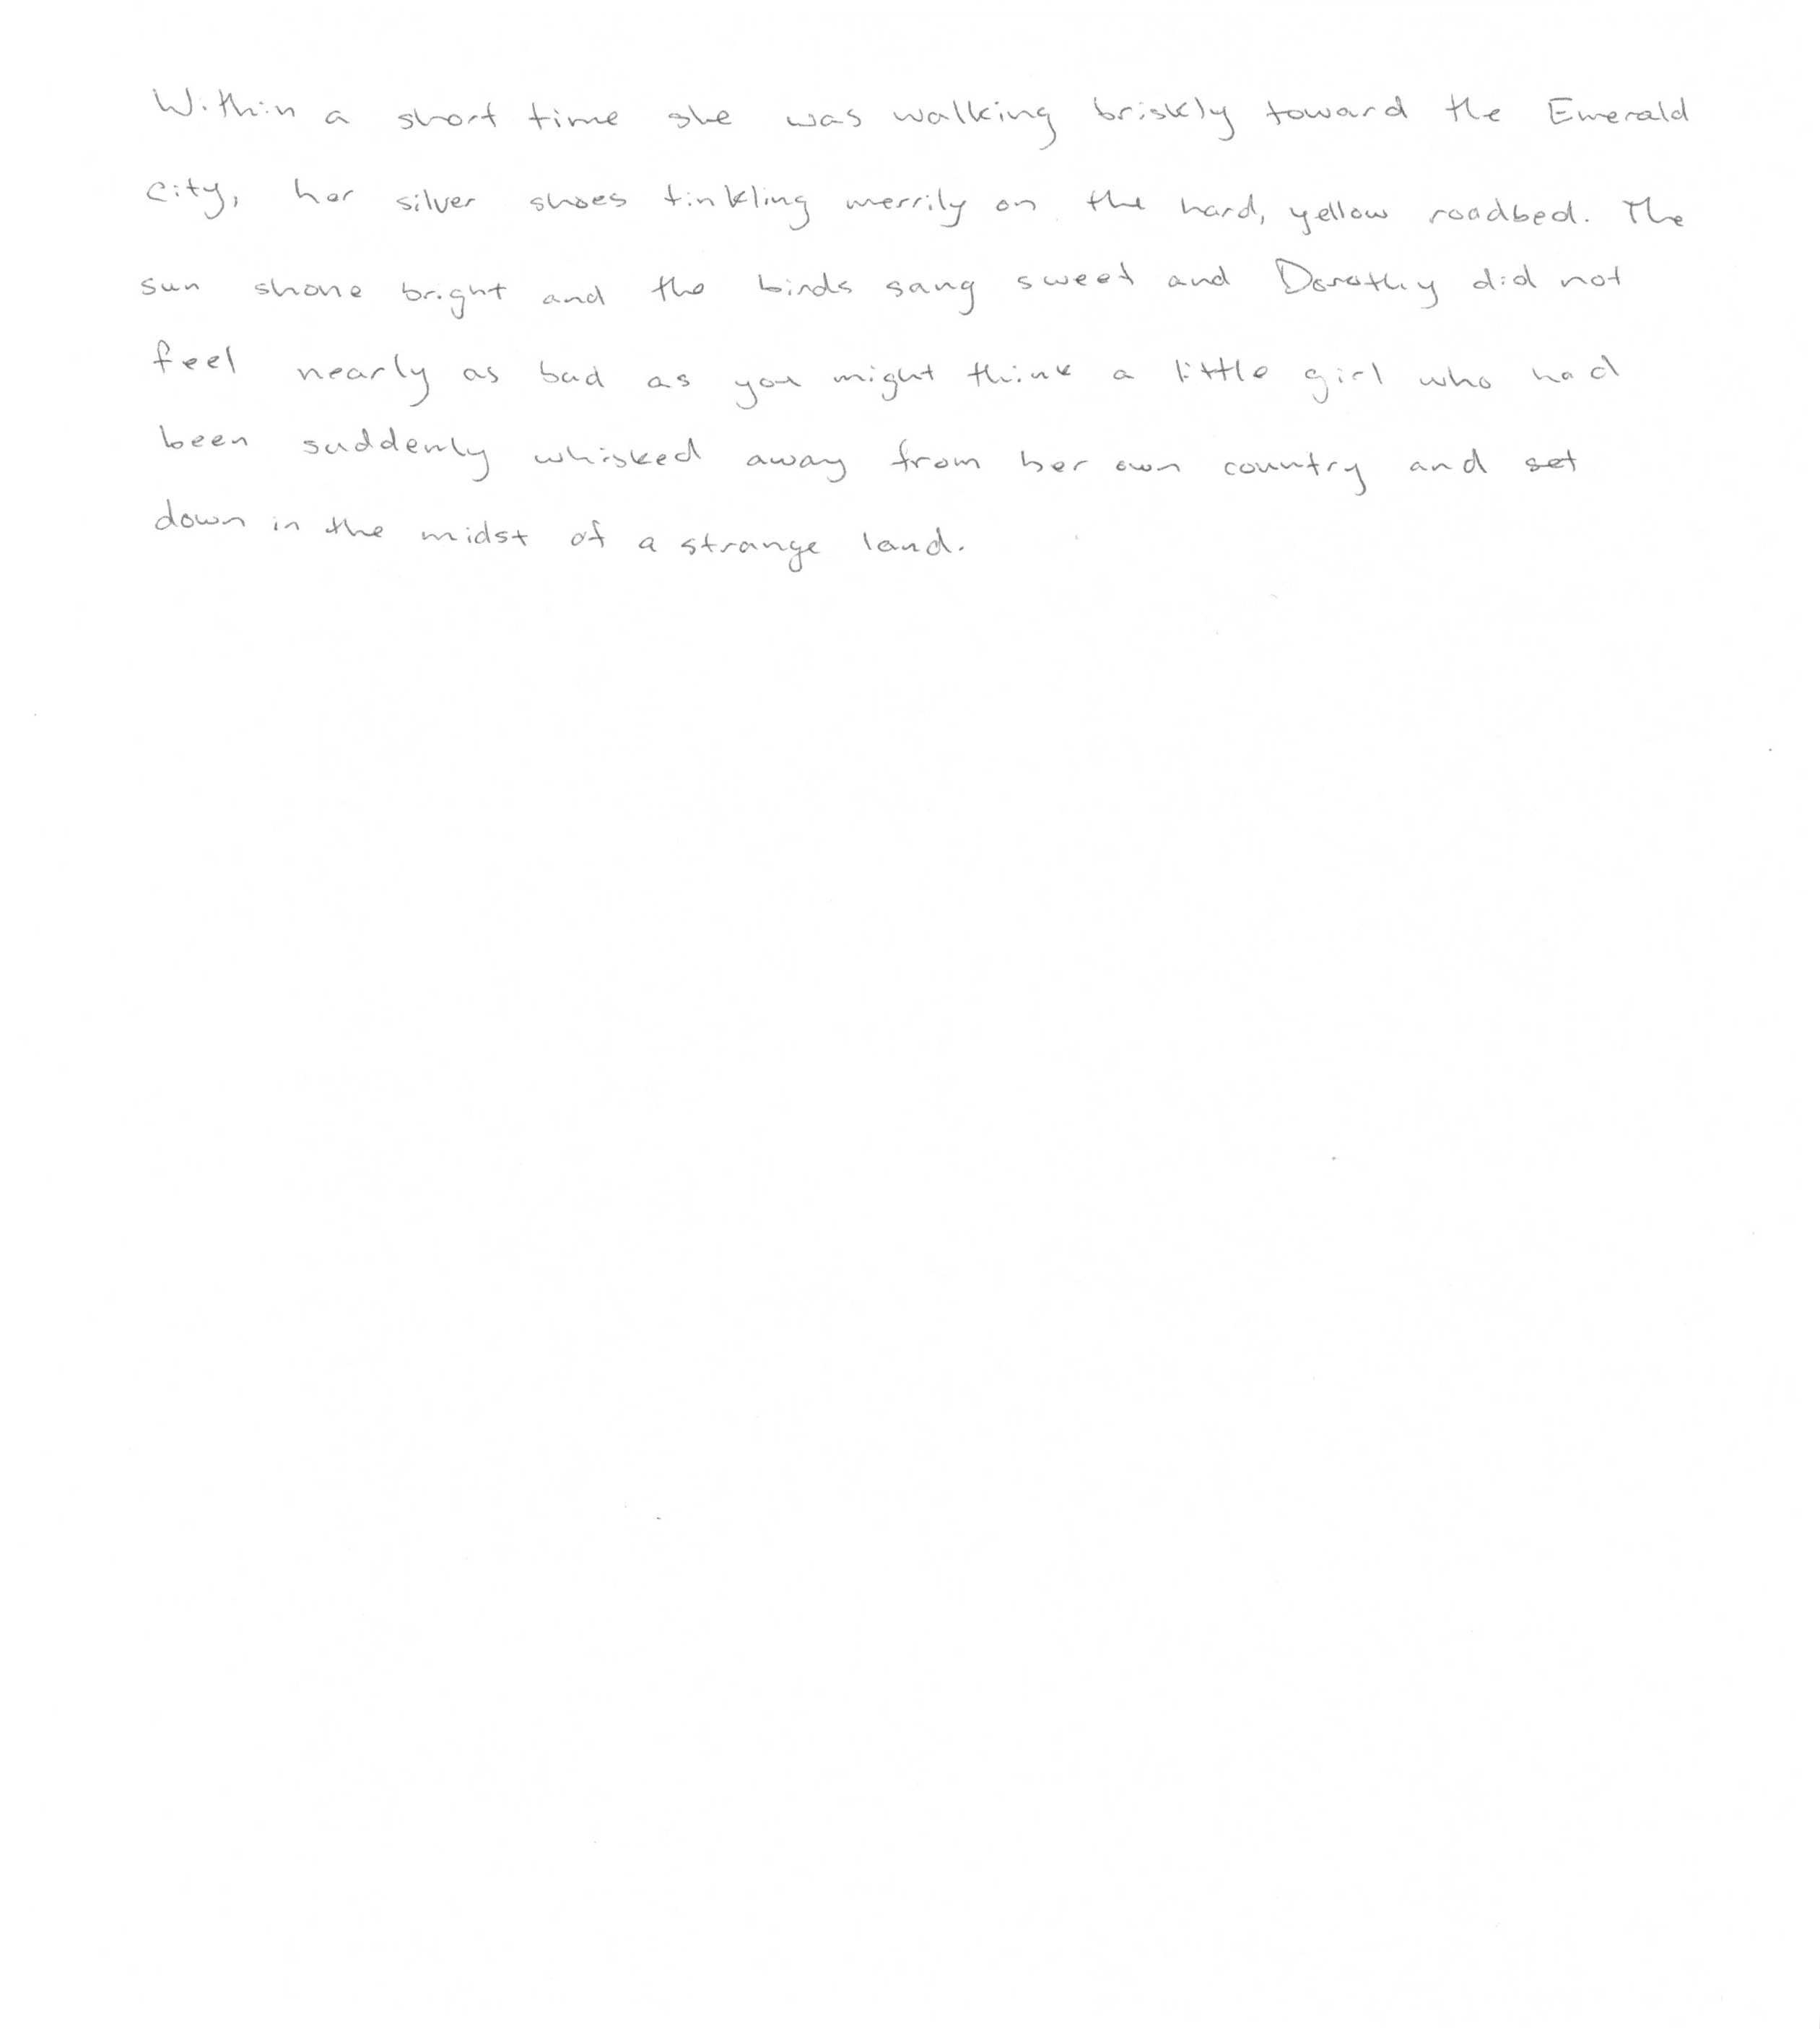 Within a short time she was walking briskly toward the Emerald
City, her silver shoes tinkling merrily on the hard, yellow roadbed. The
sun shone bright and the birds sang sweet and Dorothy did not
feel nearly as bad as you might think a little girl who had
been suddenly whisked away from her own country and set
down in the midst of a strange land.